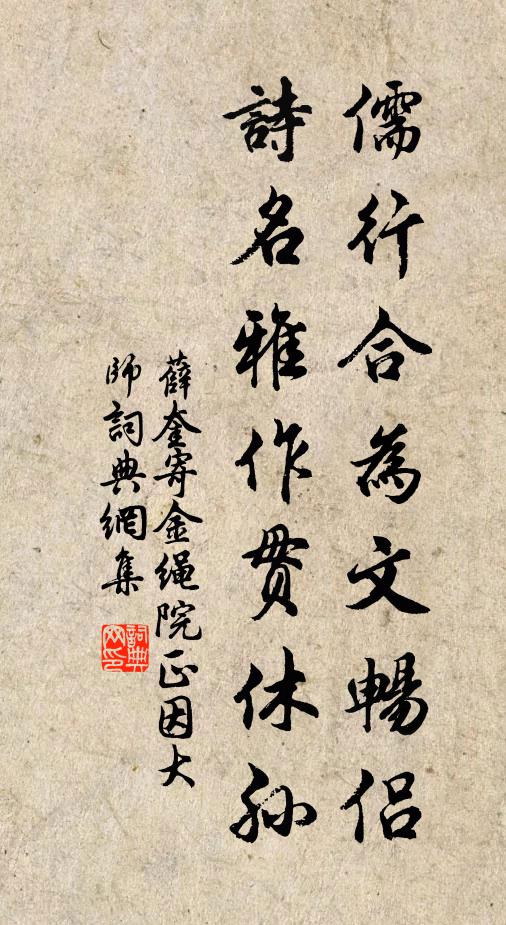 儒行合為文暢侣
詩名雅作貫休孫
薛奎寄金绳院正因大
師詞典網集
詞典
网印